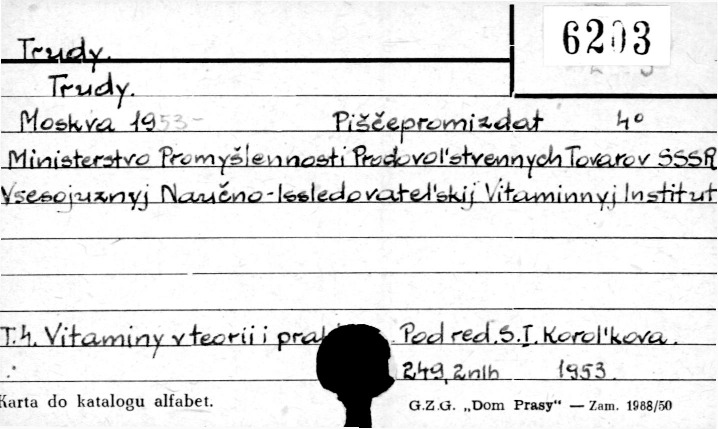 6203
Trudy.
Trudy.
Moskva 1953- Piščepromizdat 4°
Ministerstvo Promyšlennosti Prodovol'stvennych Tovarov SSSR
Vsesojuznyj Naučno-Issledovatel'skij Vitaminnyj Institut
T.4. Vitaminy v teorii i Pod red. S.I. Korol'kova.
249, 2nlb 1953.
Karta do katalogu alfabet. G.Z.G. „Dom Prasy” — Zam. 1988/50